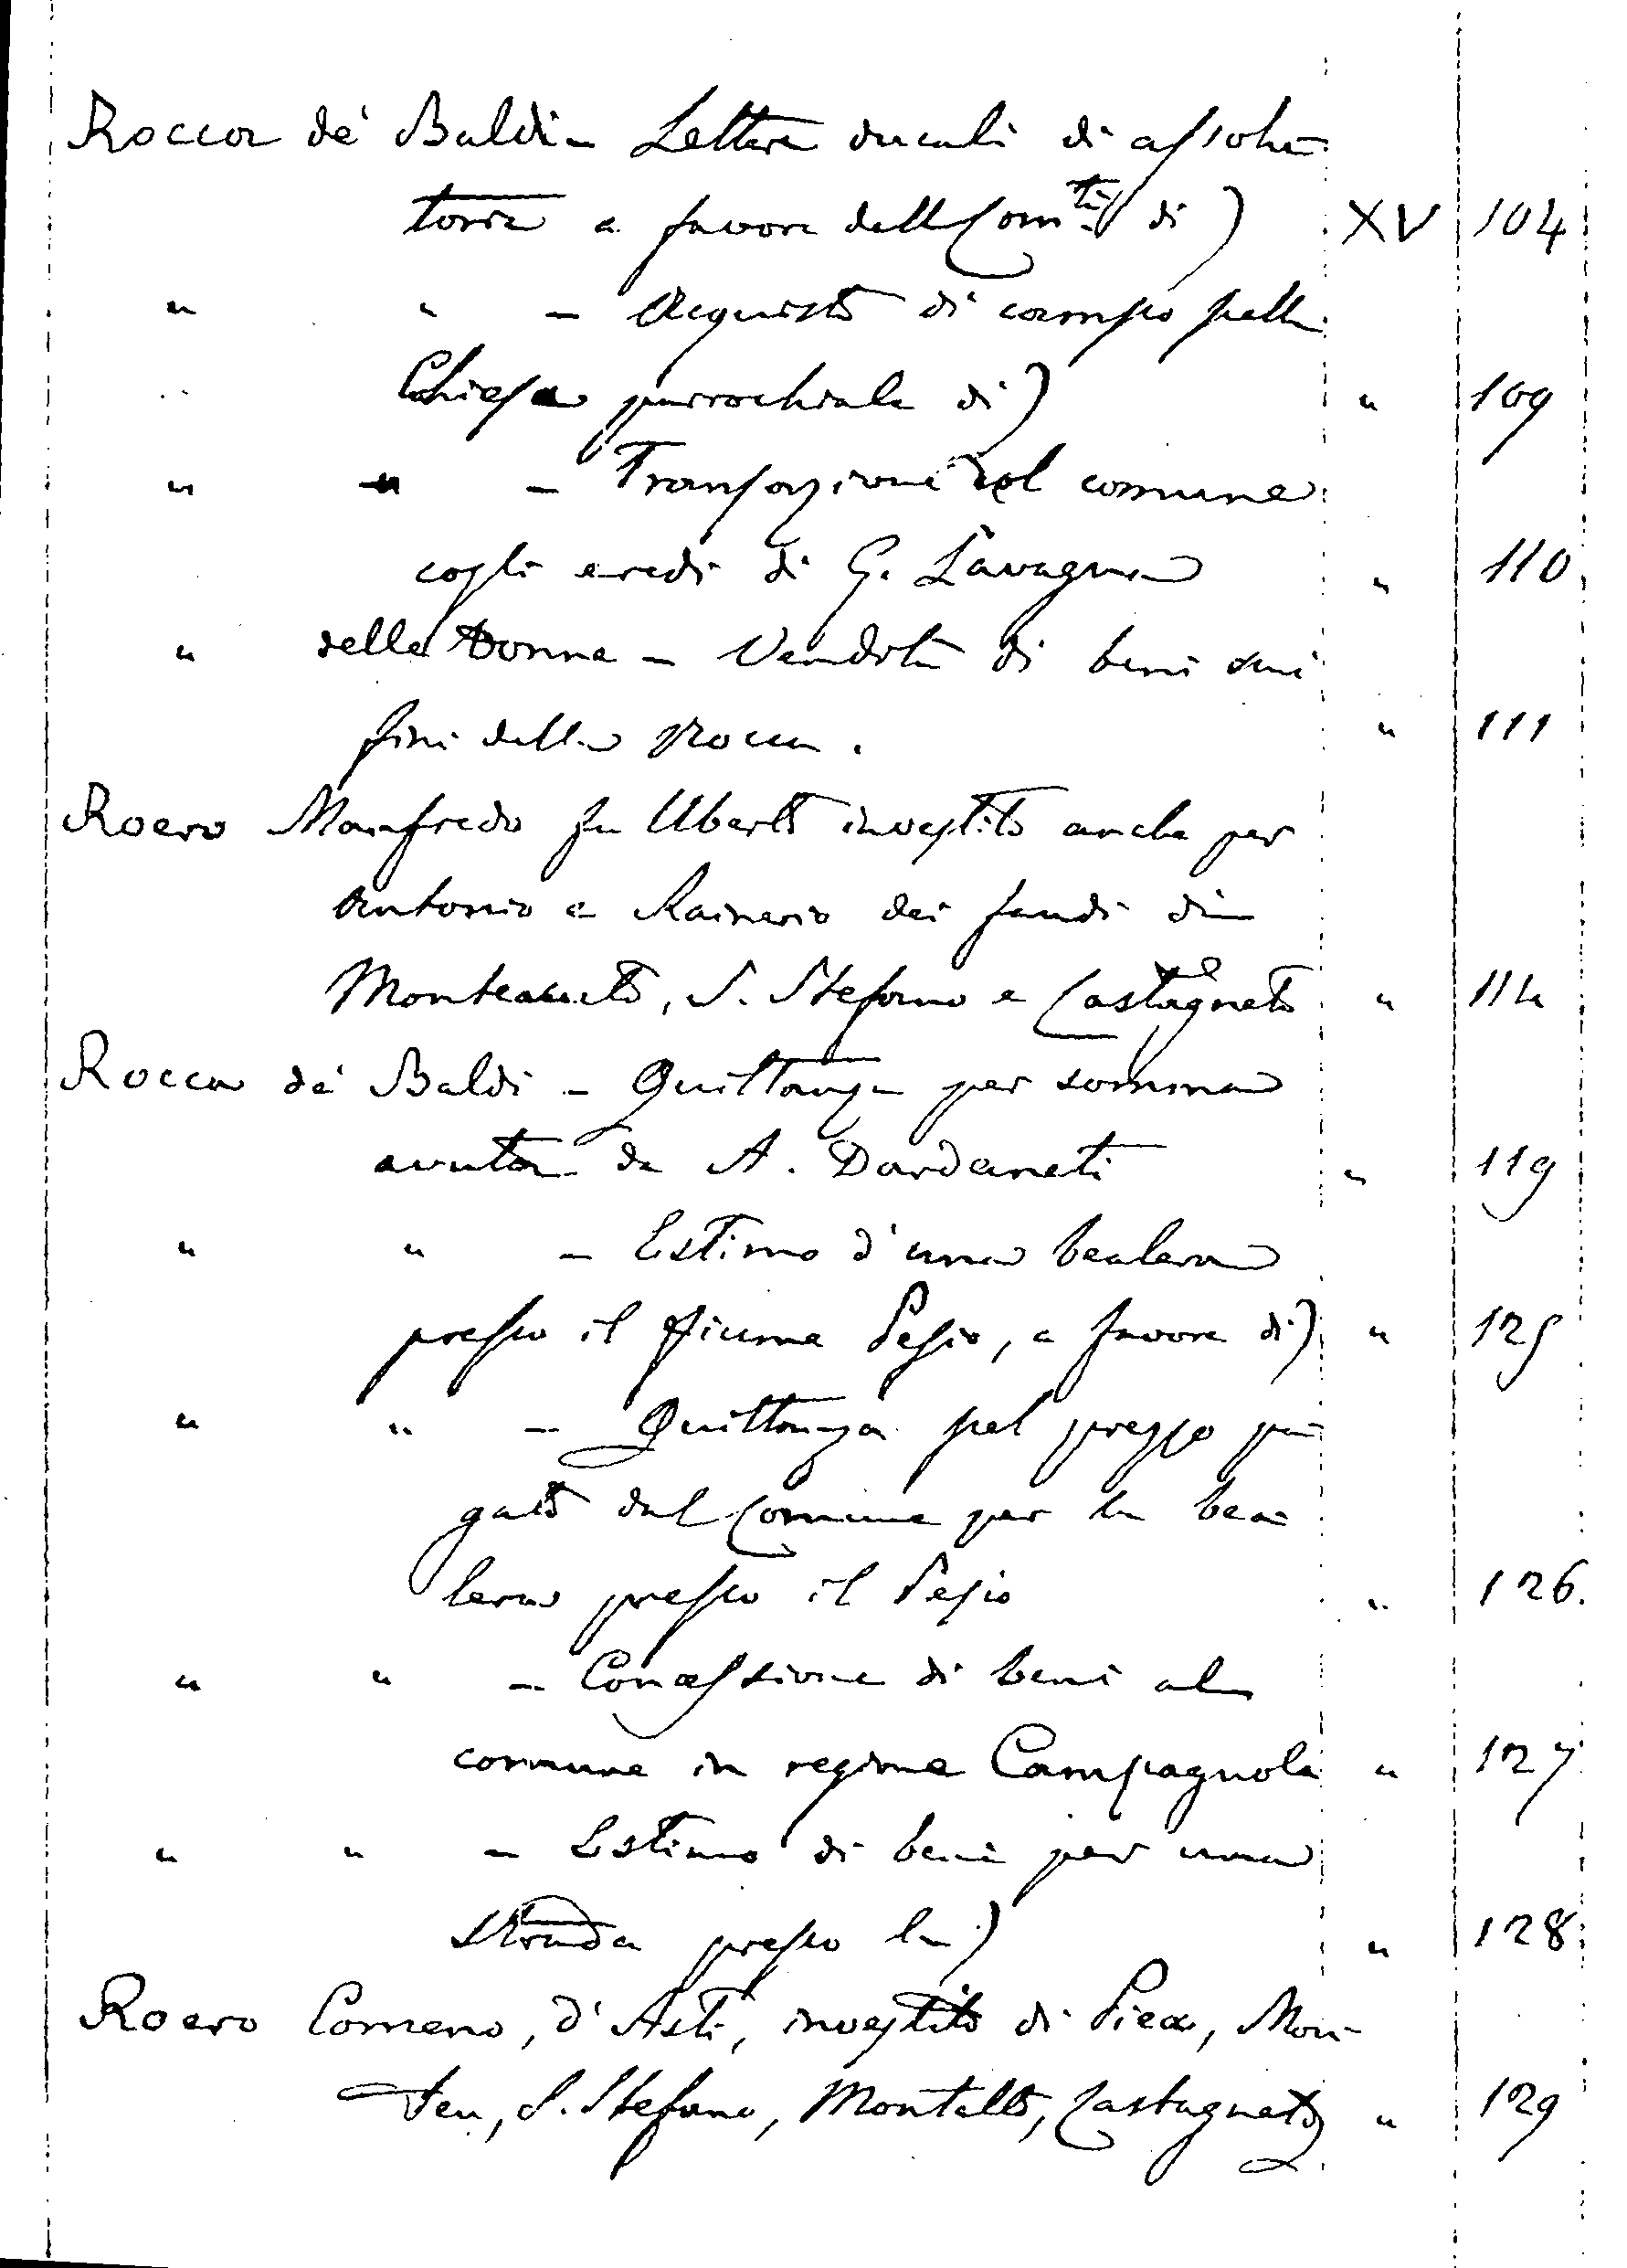 Rocca de' Baldi - Lettere ducali di assolu-
toria a favore della Com.tà di) XV 104
" " - Acquisto di campo pella
Chiesa parrochiale di) " 109
" " - Transazione del comune
cogli eredi di G. Lavagna " 110
" delle Donne - Vendita di beni sui
fini della Rocca. " 111
Roero Manfredo fu Uberto investito anche per
Antonio e Rainerio dei feudi di
Monteacuto, S. Stefano e Castagneto " 114
Rocca de' Baldi - Quittanza per somma
avuta da A. Dardaneti " 119
" " - Estimo d'una bealera
presso il fiume Pesio, a favore di) " 125
" " - Quittanza pel prezzo pa-
gato dal Comune per la bea-
lera presso il Pesio " 126.
" " - Concessione di beni al
comune in regione Campagnola " 127
" " - Estimo di beni per una
strada presso la) " 128
Roero Comeno, d'Asti, investito di Piea, Mon-
teu, S. Stefano, Montalto, Castagneto " 129